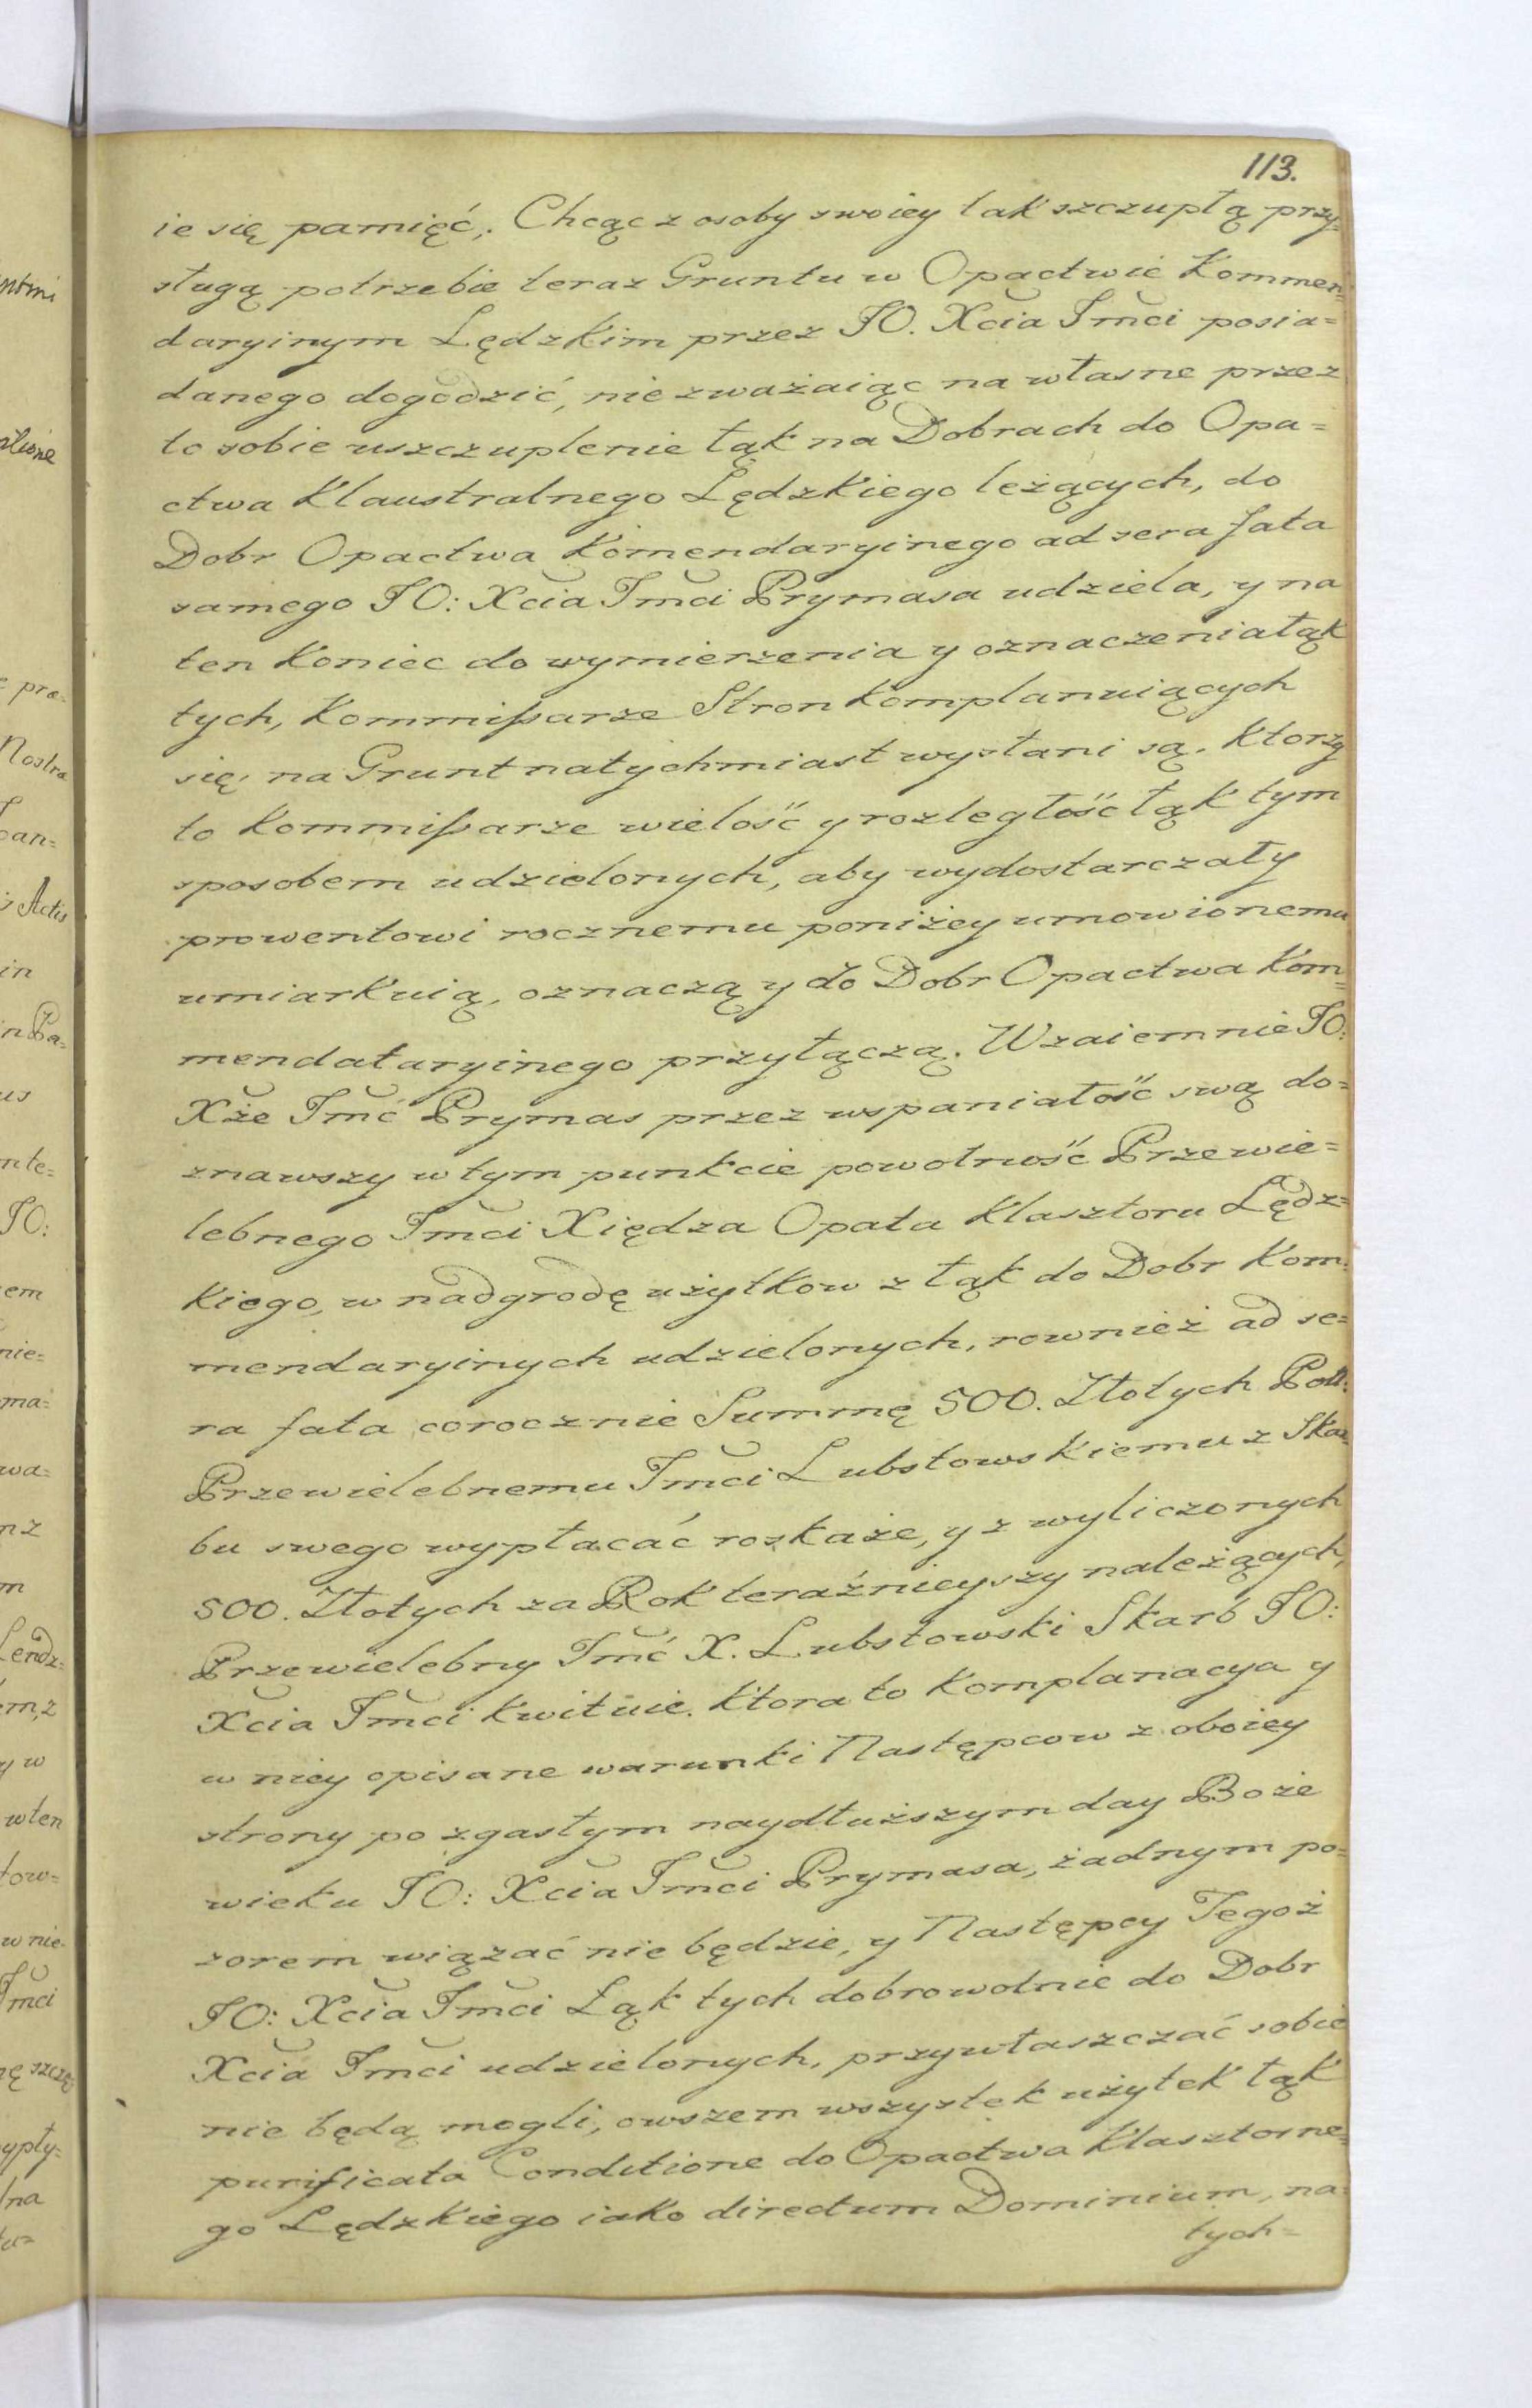 113.
ie się pamięć, Chcąc z osoby swoiey tak szczupłą przy=
sługą potrzebie teraz Gruntu w Opactwie Kommen=
daryinym Lędzkim przez JO. Xcia Jmci posia=
danego dogodzić, nie zważaiąc na własne przez
to sobie uszczuplenie łąk na Dobrach do Opa=
ctwa Klaustralnego Lędzkiego leżących, do
Dobr Opactwa Komendaryinego ad sera fata
samego JO: Xcia Jmci Prymasa udziela, y na
ten koniec do wymierzenia y oznaczenia łąk
tych, Kommißarze Stron komplanuiących
się, na Grunt natychmiast wysłani są. Ktorzy
to Kommißarze wielość y rozległość łąk tym
sposobem udzielonych, aby wydostarczały
prowentowi rocznemu poniżey umowionemu
umiarkuią, oznaczą y do Dobr Opactwa Kom=
mendataryinego przyłączą. Wzaiemnie JO:
Xże Jmć Prymas przez wspaniałość swą do=
znawszy w tym punkcie powolność Przewie=
lebnego Jmci Xiędza Opata Klasztoru Lędz=
kiego, w nadgrodę użytkow z łąk do Dobr Kom:
mendaryinych udzielonych, rownież ad se=
ra fata corocznie Summę 500. Złotych Poll:
Przewielebnemu Jmci Lubstowskiemu z Skar=
bu swego wypłacać roskaże, y z wyliczonych
500. Złotych za Rok teraźnieyszy należących,
Przewielebny Jmć X. Lubstowski Skarb JO:
Xcia Jmci kwituie. Ktora to Komplanacya y
w niey opisane warunki Następcow z oboiey
strony po zgasłym naydłuższym day Boże
wieku JO: Xcia Jmci Prymasa, żadnym po=
zorem wiązać nie będzie, y Następcy Tegoż
JO: Xcia Jmci Łąk tych dobrowolnie do Dobr
Xcia Jmci udzielonych, przywłaszczać sobie
nie będą mogli, owszem wszystek użytek łąk
purificata Conditione do Opactwa Klasztorne=
go Lędzkiego iako directum Dominium, na
tych=